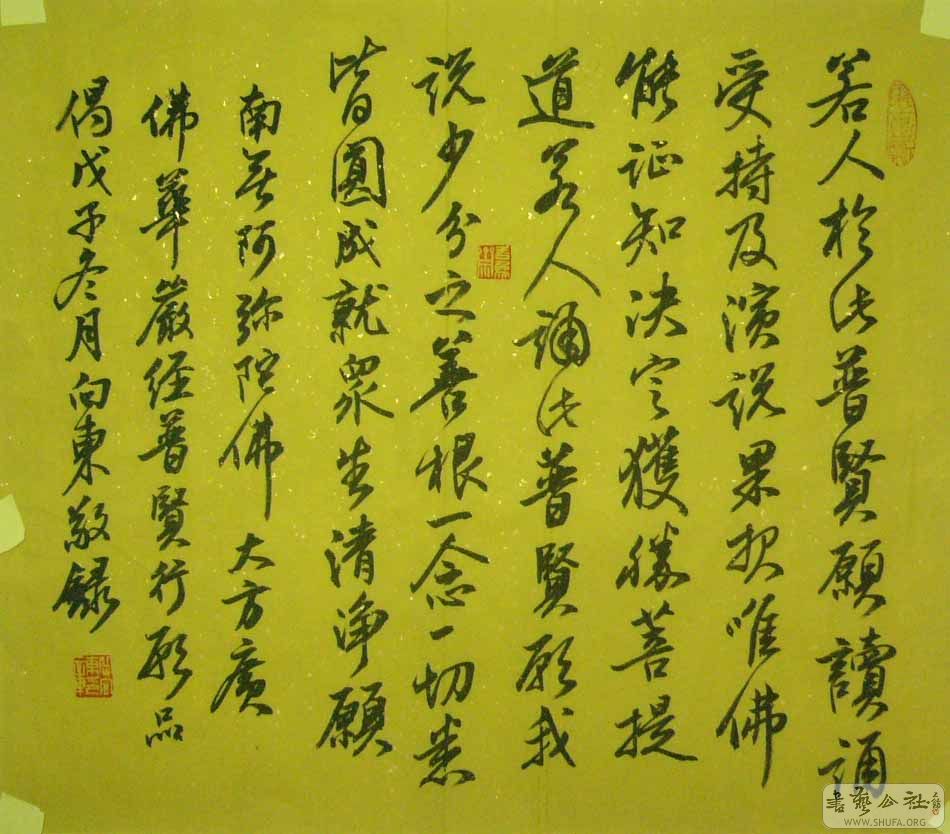 若人於此普賢願讀誦
受持及演説果报唯佛
能证知决定獲勝菩提
道若人誦此普賢願我
説少分之善根一念一切悉
皆圓成就眾生清净願
南无阿弥陀佛 大方廣
佛華嚴经普賢行願品
偈戊子冬月向東敬録
書藝公社
WWW.SHUFA.ORG